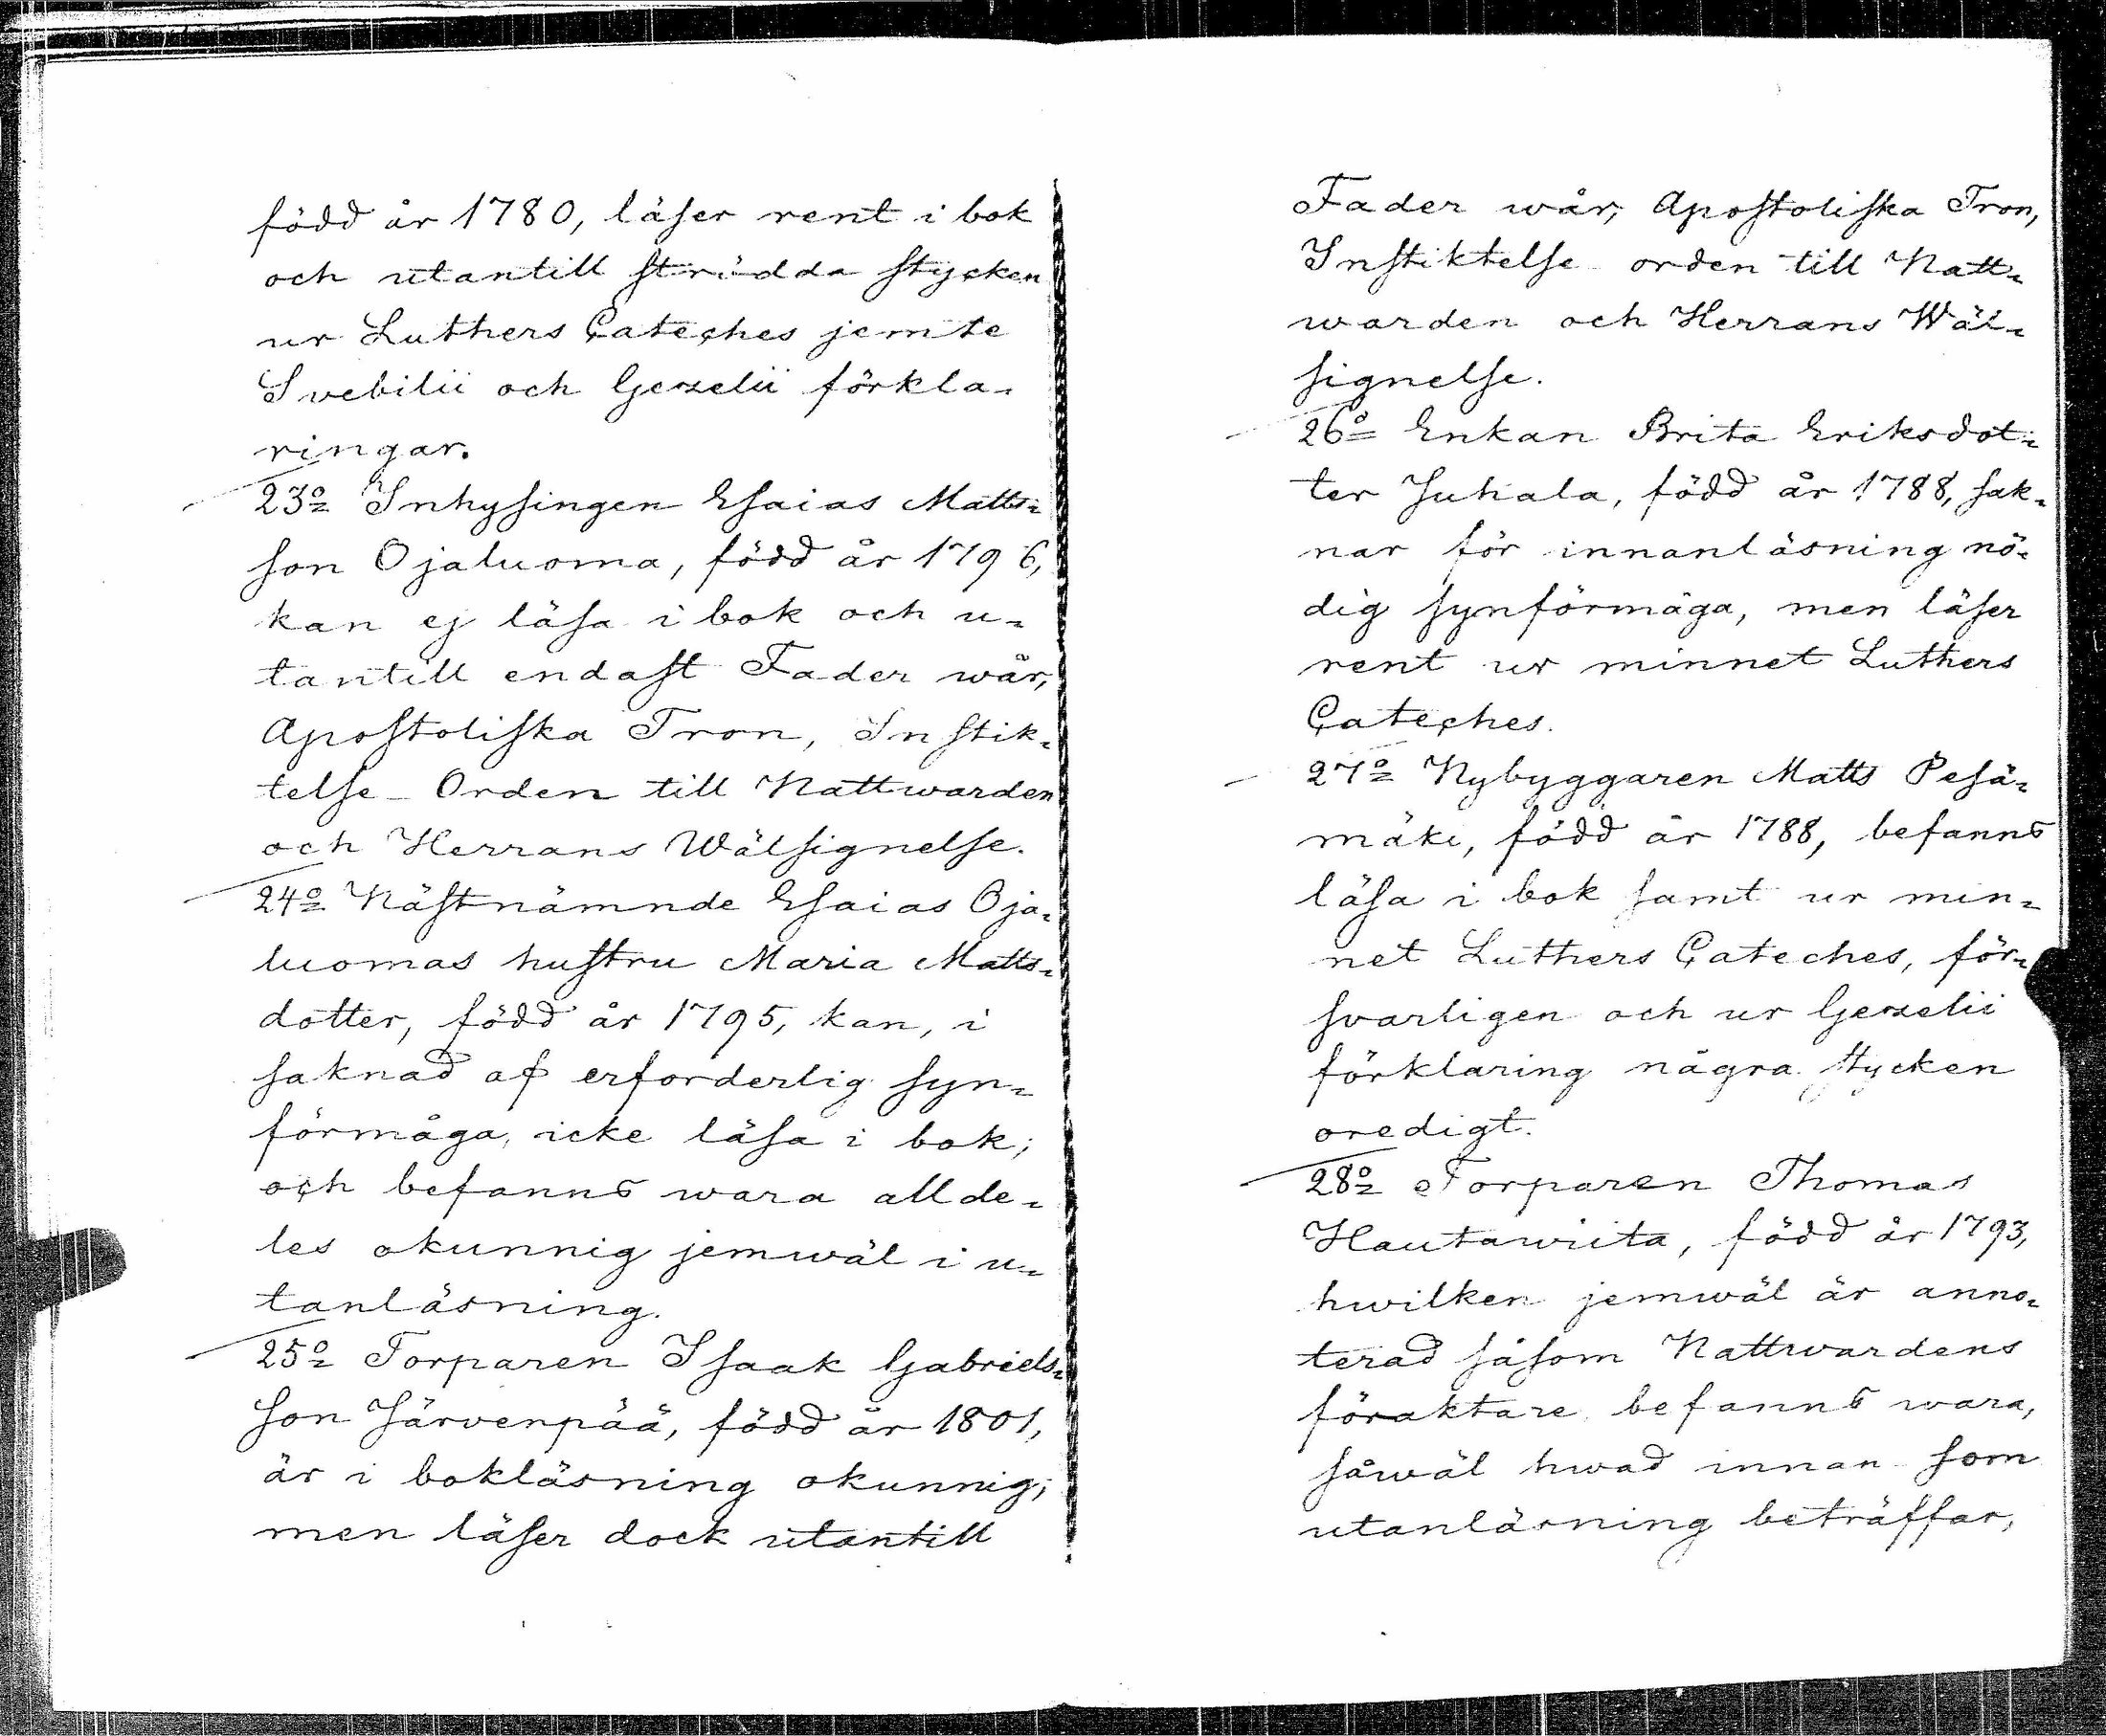 född år 1780, läser rent i bok
och utantill strödda stycken
ur Luthers Cateches jemte
Svebilii och Gezelii förkla-
ringar.
23o Inhysingen Esaias Matts-
son Ojaluoma, född år 1796,
kan ej läsa i bok och u-
tantill endast Fader wår,
Apostoliska Tron, Instik-
telse-Orden till Nattwarden
och Herrans Wälsignelse.
24o Nästnämnde Esaias Oja-
luomas hustru Maria Matts-
dotter, född år 1795, kan, i
saknad af erforderlig syn-
förmåga, icke läsa i bok;
och befanns wara allde-
les okunnig jemwäl i u-
tanläsning.
25o Torparen Isaak Gabriels-
son Järvenpää, född år 1801,
är i bokläsning okunnig;
men läser dock utantill
Fader wår, Apostoliska Tron,
Instiktelse-orden till Natt-
warden och Herrans Wäl-
signelse.
26o Enkan Brita Eriksdot-
ter Juhala, född år 1788, sak-
nar för innanläsning nö-
dig synförmåga, men läser
rent ur minnet Luthers
Cateches.
27o Nybyggaren Matts Pesä-
mäki, född år 1788, befanns
läsa i bok samt ur min-
net Luthers Cateches, för-
svarligen och ur Gezelii
förklaring några stycken
oredigt.
28o Torparen Thomas
Hautawiita, född år 1793,
hwilken jemwäl är anno-
terad såsom Nattwardens
föraktare befanns wara,
såwäl hwad innan- som
utanläsning beträffar,